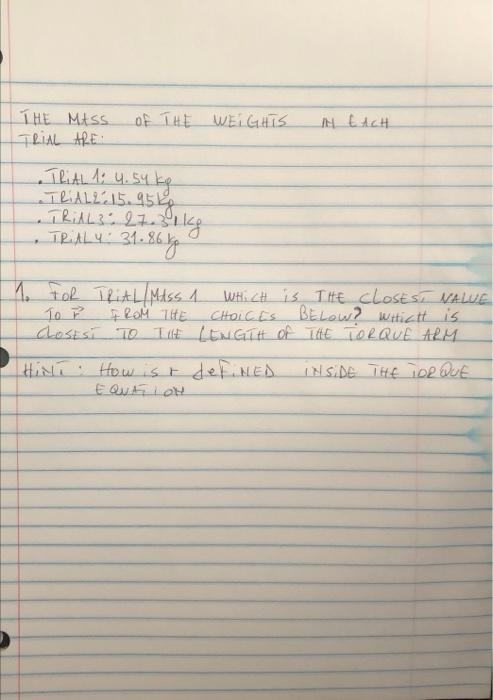 THE MASS OF THE WEIGHTS IN EACH
TRIAL ARE:
. TRIAL 1: 4.54 kg
. TRIAL 2: 15.95 kg
. TRIAL 3: 27.31 kg
. TRIAL 4: 31.86 kg
1. FOR TRIAL/MASS 1 WHICH IS THE CLOSEST VALUE
TO r⃗ FROM THE CHOICES BELOW? WHICH IS
CLOSEST TO THE LENGTH OF THE TORQUE ARM
HINT: HOW IS r DEFINED INSIDE THE TORQUE
EQUATION